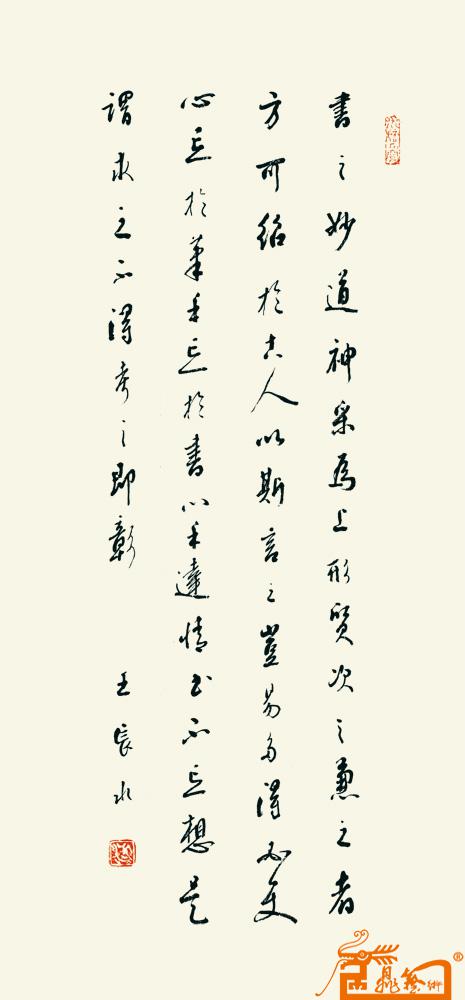 書之妙道神采爲上形質次之兼之者
方可紹於古人以斯言之豈易多得必使
心忘於筆手忘於書心手達情书不忘想是
謂求之不得考之即彰
王長水